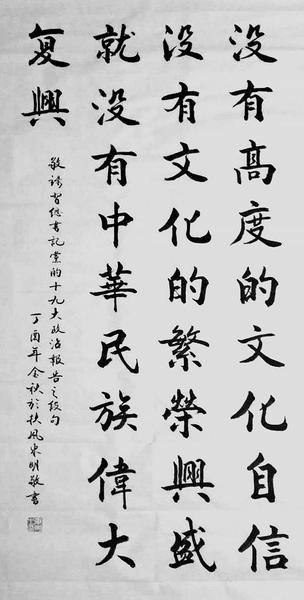 没有高度的文化自信
没有文化的繁荣興盛
就没有中華民族偉大
复興
敬譸習總書记党的十九大政治報告之段句
丁酉年金秋於扶风東明敬書